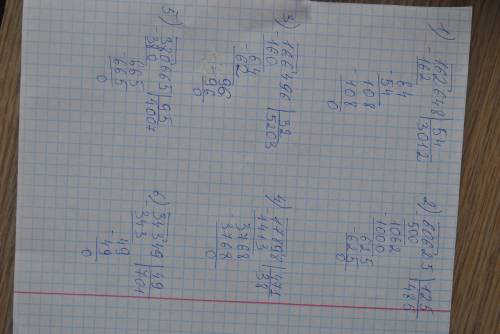 1) 162648 | 54
-162 | 3012
64
54
108
-108
0
2) 60625 | 125
500 | 485
-1062
1000
625
-625
0
3) 166496 | 32
-160 | 5203
-64
62
96
-96
0
4) 17898 | 471
-1413 | 38
3768
3768
0
5) 380665 | 95
-380 | 4007
665
-665
0
6) 34349 | 49
-343 | 701
-49
49
0